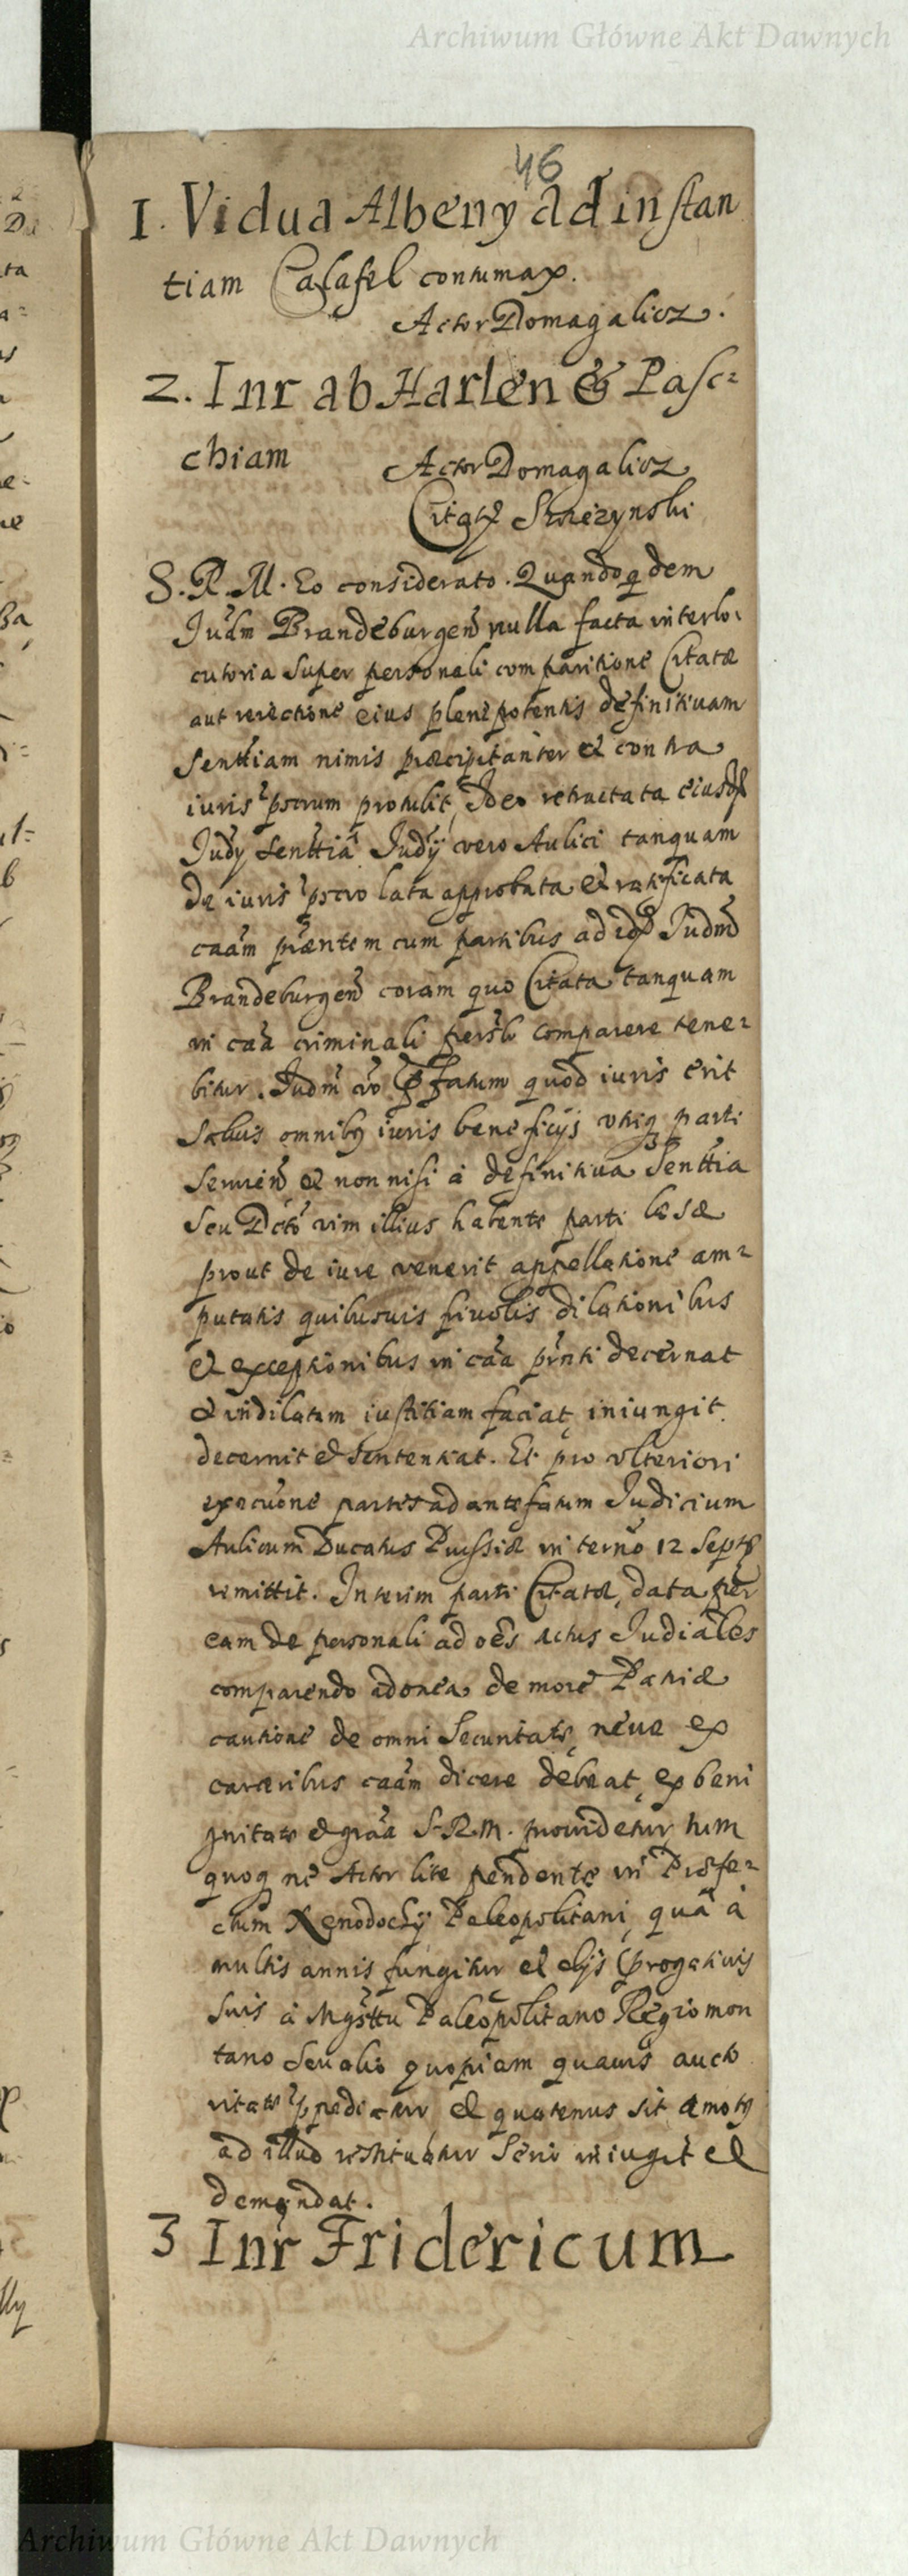 Archiwum Główne Akt Dawnych
46
1. Vidua Albeny ad instan
tiam Casafel contumax.
Actor Domagalicz.
2. Inr ab Harlen & Pasc=
chiam
Actor Domagalicz
Citatæ
S. R. M. Eo considerato. Quandoq dem
Judm Brandeburgen nulla facta interlo=
cutoria super personali comparitione Citatæ
aut reiectione eius plenipotentis definitivam
Senttiam nimis præcipitanter et contra
iuris pscrum protulit, Ideo retractata eiusd
Judy senttia Judij vero Aulici tanquam
de iuris pscro lata approbata et ratificata
caam præntem cum partibus ad id Judm
Brandeburgen coram quo Citata tanquam
in caa criminali persLr comparere tene=
bitur. Judm vo fatum quod iuris erit
Salvis omnibq iuris beneficijs utriq parti
Servien et non nisi à definitiva Senttia
seu Dcto vim illius habente parti læsæ
prout de iure venerit appellatione am=
putatis quibusvis frivolis dilationibus
et exceptionibus in caa prnti decernat
et indilatam iustitiam faciat, iniungit
decernit et sententiat. Et pro ulteriori
execuone partes ad antefatum Judicium
Aulicum Ducatus Prussiæ in terno 12 Septr
remittit. Interim parti Citatæ, data per
eam de personali ad oes actus Judiales
comparendo adonea, de more Patriæ
cautione de omni Securitate, neve ex
carceribus caam dicere debeat, ex beni
gnitate et graa S. R. M. providetur, tum
quoq ne Actor lite pendente in Præfe=
ctum Xenodochij Paleopolitani, qua à
multis annis fungitur et alijs progativis
suis à Mgsttu Paleopolitano Regiomon
tano seu alio quopiam quavis autho
ritate ppediatur et quatenus sit amotq
ad illud restituatur serio iniugit et
demandat.
3 Inr Fridericum
Archiwum Główne Akt Dawnych